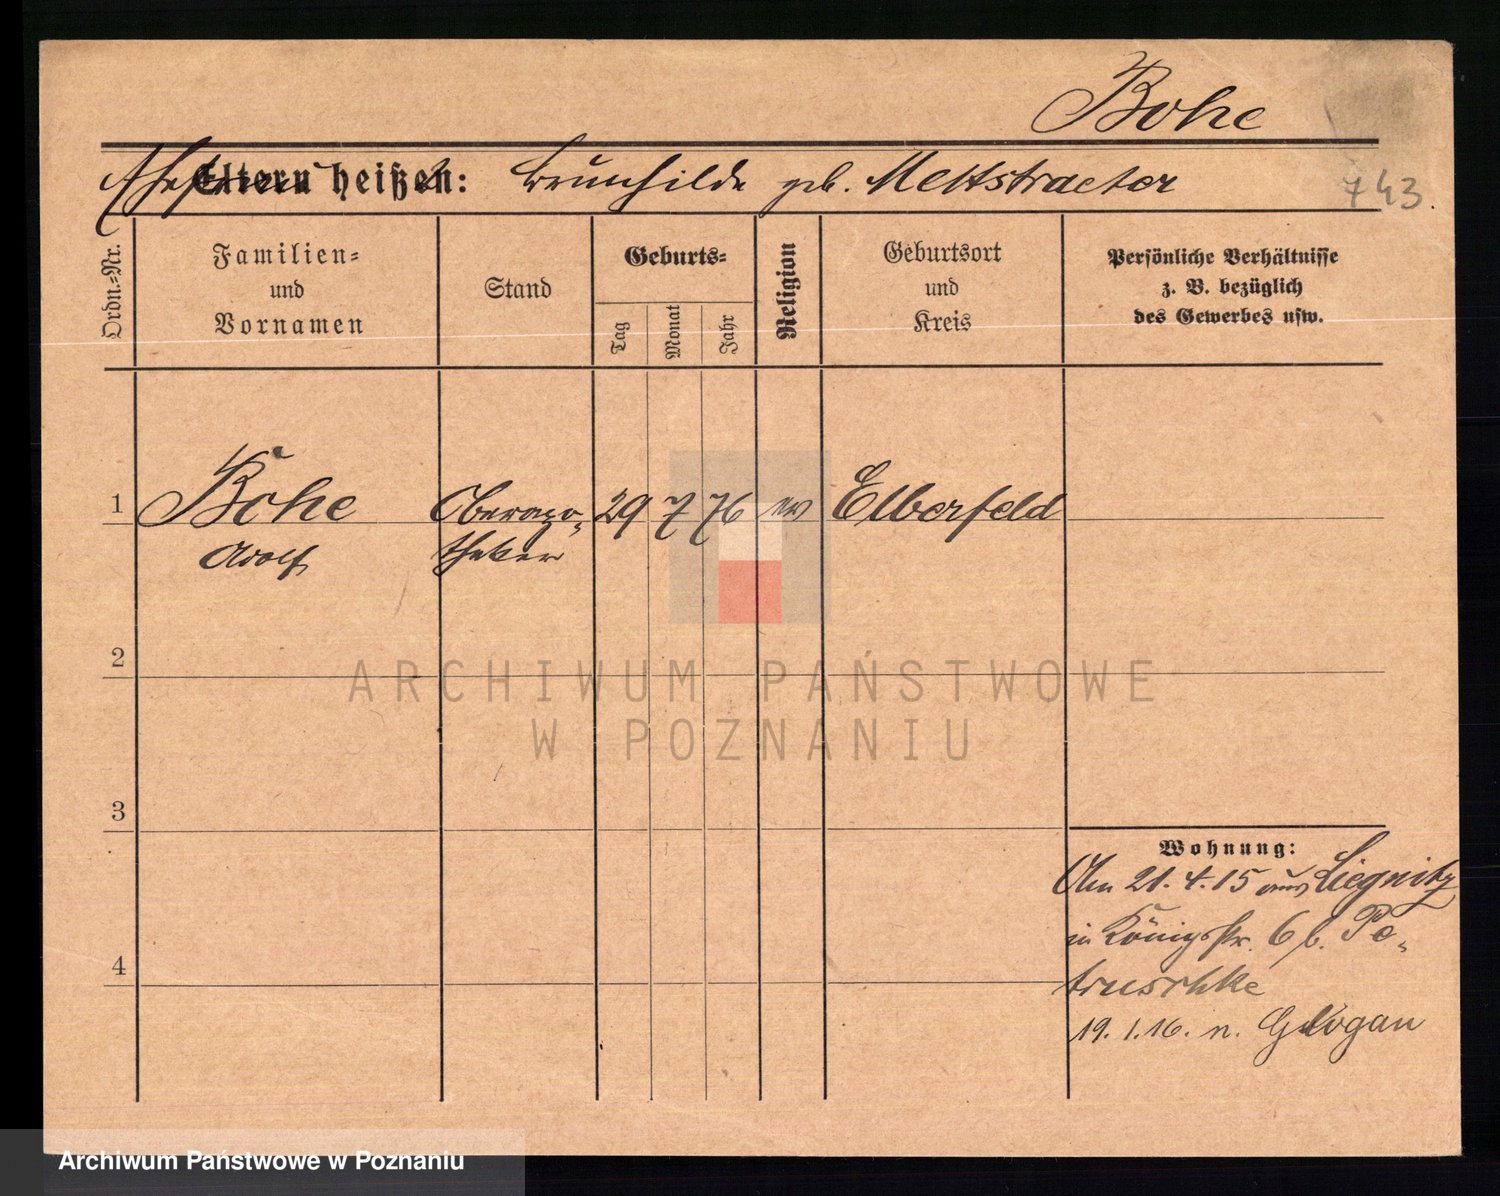 Bohe
Ehefrau
Eltern heißen: Brunhilde geb. Mettstraeter
743.
Ordn.-Nr.
Familien-
und
Vornamen
Stand
Geburts-
Tag
Monat
Jahr
Religion
Geburtsort
und
Kreis
Persönliche Verhältnisse
z. B. bezüglich
des Gewerbes usw.
1 Bohe Oberapo- 29 7 76 ev Elberfeld
Adolf theker
2
ARCHIWUM PAŃSTWOWE
W POZNANIU
3
Wohnung:
Am 21.4.15 aus Liegnitz
in Königstr. 6 b. Pe-
truschke
4
19.1.16. n. Glogau
Archiwum Państwowe w Poznaniu